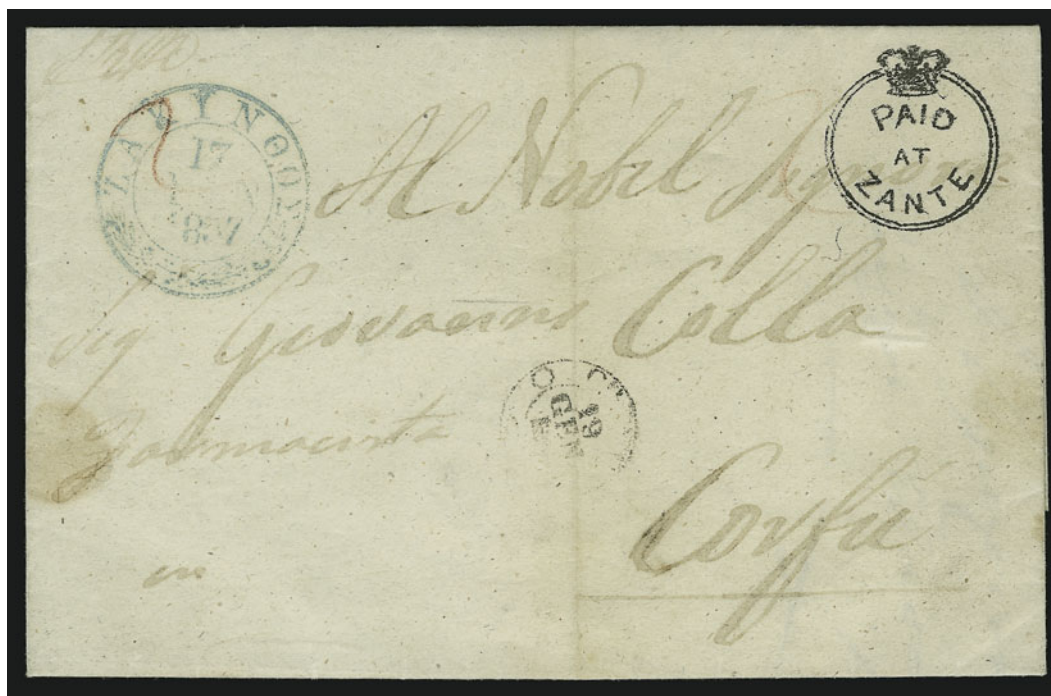 ΖΑΚΥΝΘΟΥ
17
1857
PAID
AT
ZANTE
Al Nobil Signore
Sig Giovanni Colla
19
GEN
Farmacista
Corfù
in